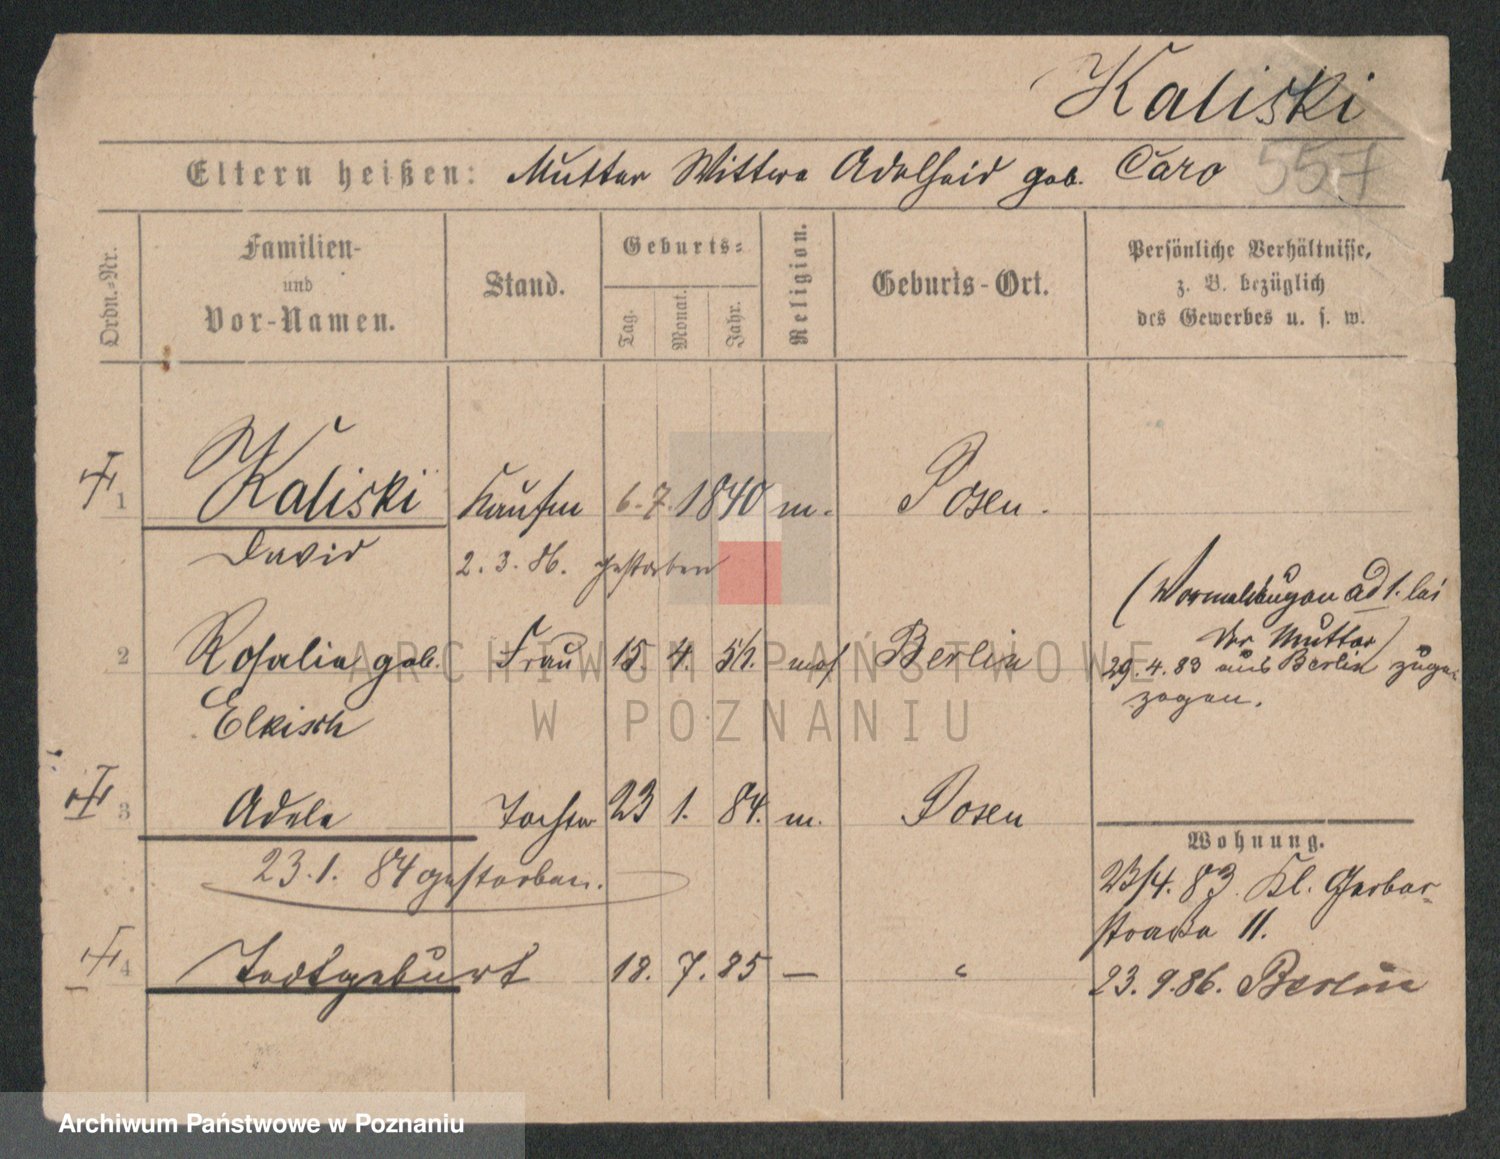 Kaliski
557
Eltern heißen: Mutter Wittwe Adelheid geb. Caro
Ordn.-Nr.
Familien- und Vor-Namen.
Stand.
Geburts-
Tag.
Monat.
Jahr.
Religion.
Geburts-Ort.
Persönliche Verhältnisse,
z. B. bezüglich
des Gewerbes u. s. w.
1 Kaliski Kaufm 6. 7. 1840 m. Posen.
David
2. 3. 86. gestorben
(Vormeldungen ad 1. bei
der Mutter)
2 Rosalie geb. Frau 15. 4. mos Berlin
29. 4. 83 aus Berlin zuge-
zogen.
Elkisch
3 Adele Tochter 23 1. 84. m. Posen
23. 1. 84 gestorben.
Wohnung.
23/4. 83. Kl. Gerber-
straße 11.
4 Todtgeburt 18. 7. 85 — "
23. 9. 86. Berlin
ARCHIWUM PAŃSTWOWE
W POZNANIU
Archiwum Państwowe w Poznaniu